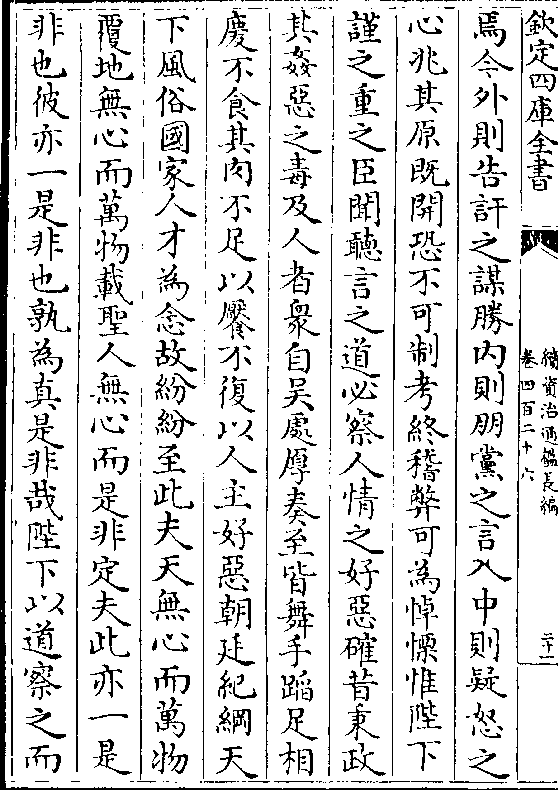 欽定四庫全書
續資治通鑑長編
卷四百二十六
二十二
焉今外則告訐之謀勝内則朋黨之言入中則疑怒之
心兆其原既開恐不可制考終稽弊可為悼慄惟陛下
謹之重之臣聞聽言之道必察人情之好惡確昔秉政
其姦惡之毒及人者衆自吴處厚奏至皆舞手蹈足相
慶不食其肉不足以饜不復以人主好惡朝廷紀綱天
下風俗國家人才為念故紛紛至此夫天無心而萬物
覆地無心而萬物載聖人無心而是非定夫此亦一是
非也彼亦一是非也孰為真是非哉陛下以道察之而